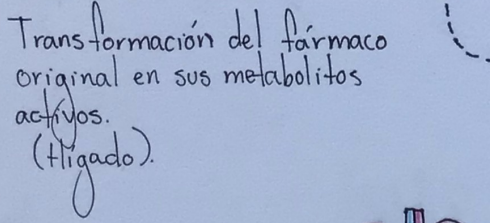 Transformación del fármaco
original en sus metabolitos
activos.
(Hígado).